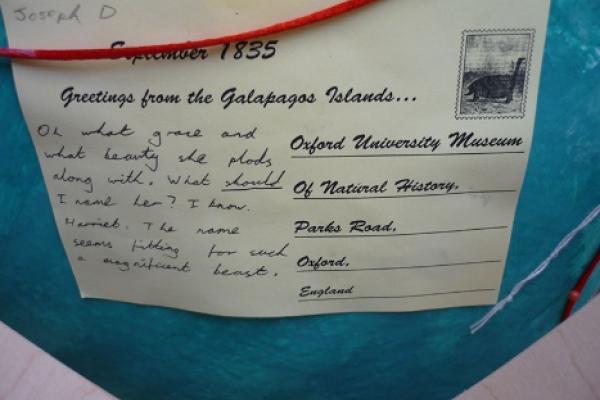 Joseph D
September 1835
Greetings from the Galapagos Islands...
Oh what grace and
what beauty she plods
along with. What should
I name her? I know.
Harriet. The name
seems fitting for such
a magnificent beast.
Oxford University Museum
Of Natural History,
Parks Road,
Oxford,
England